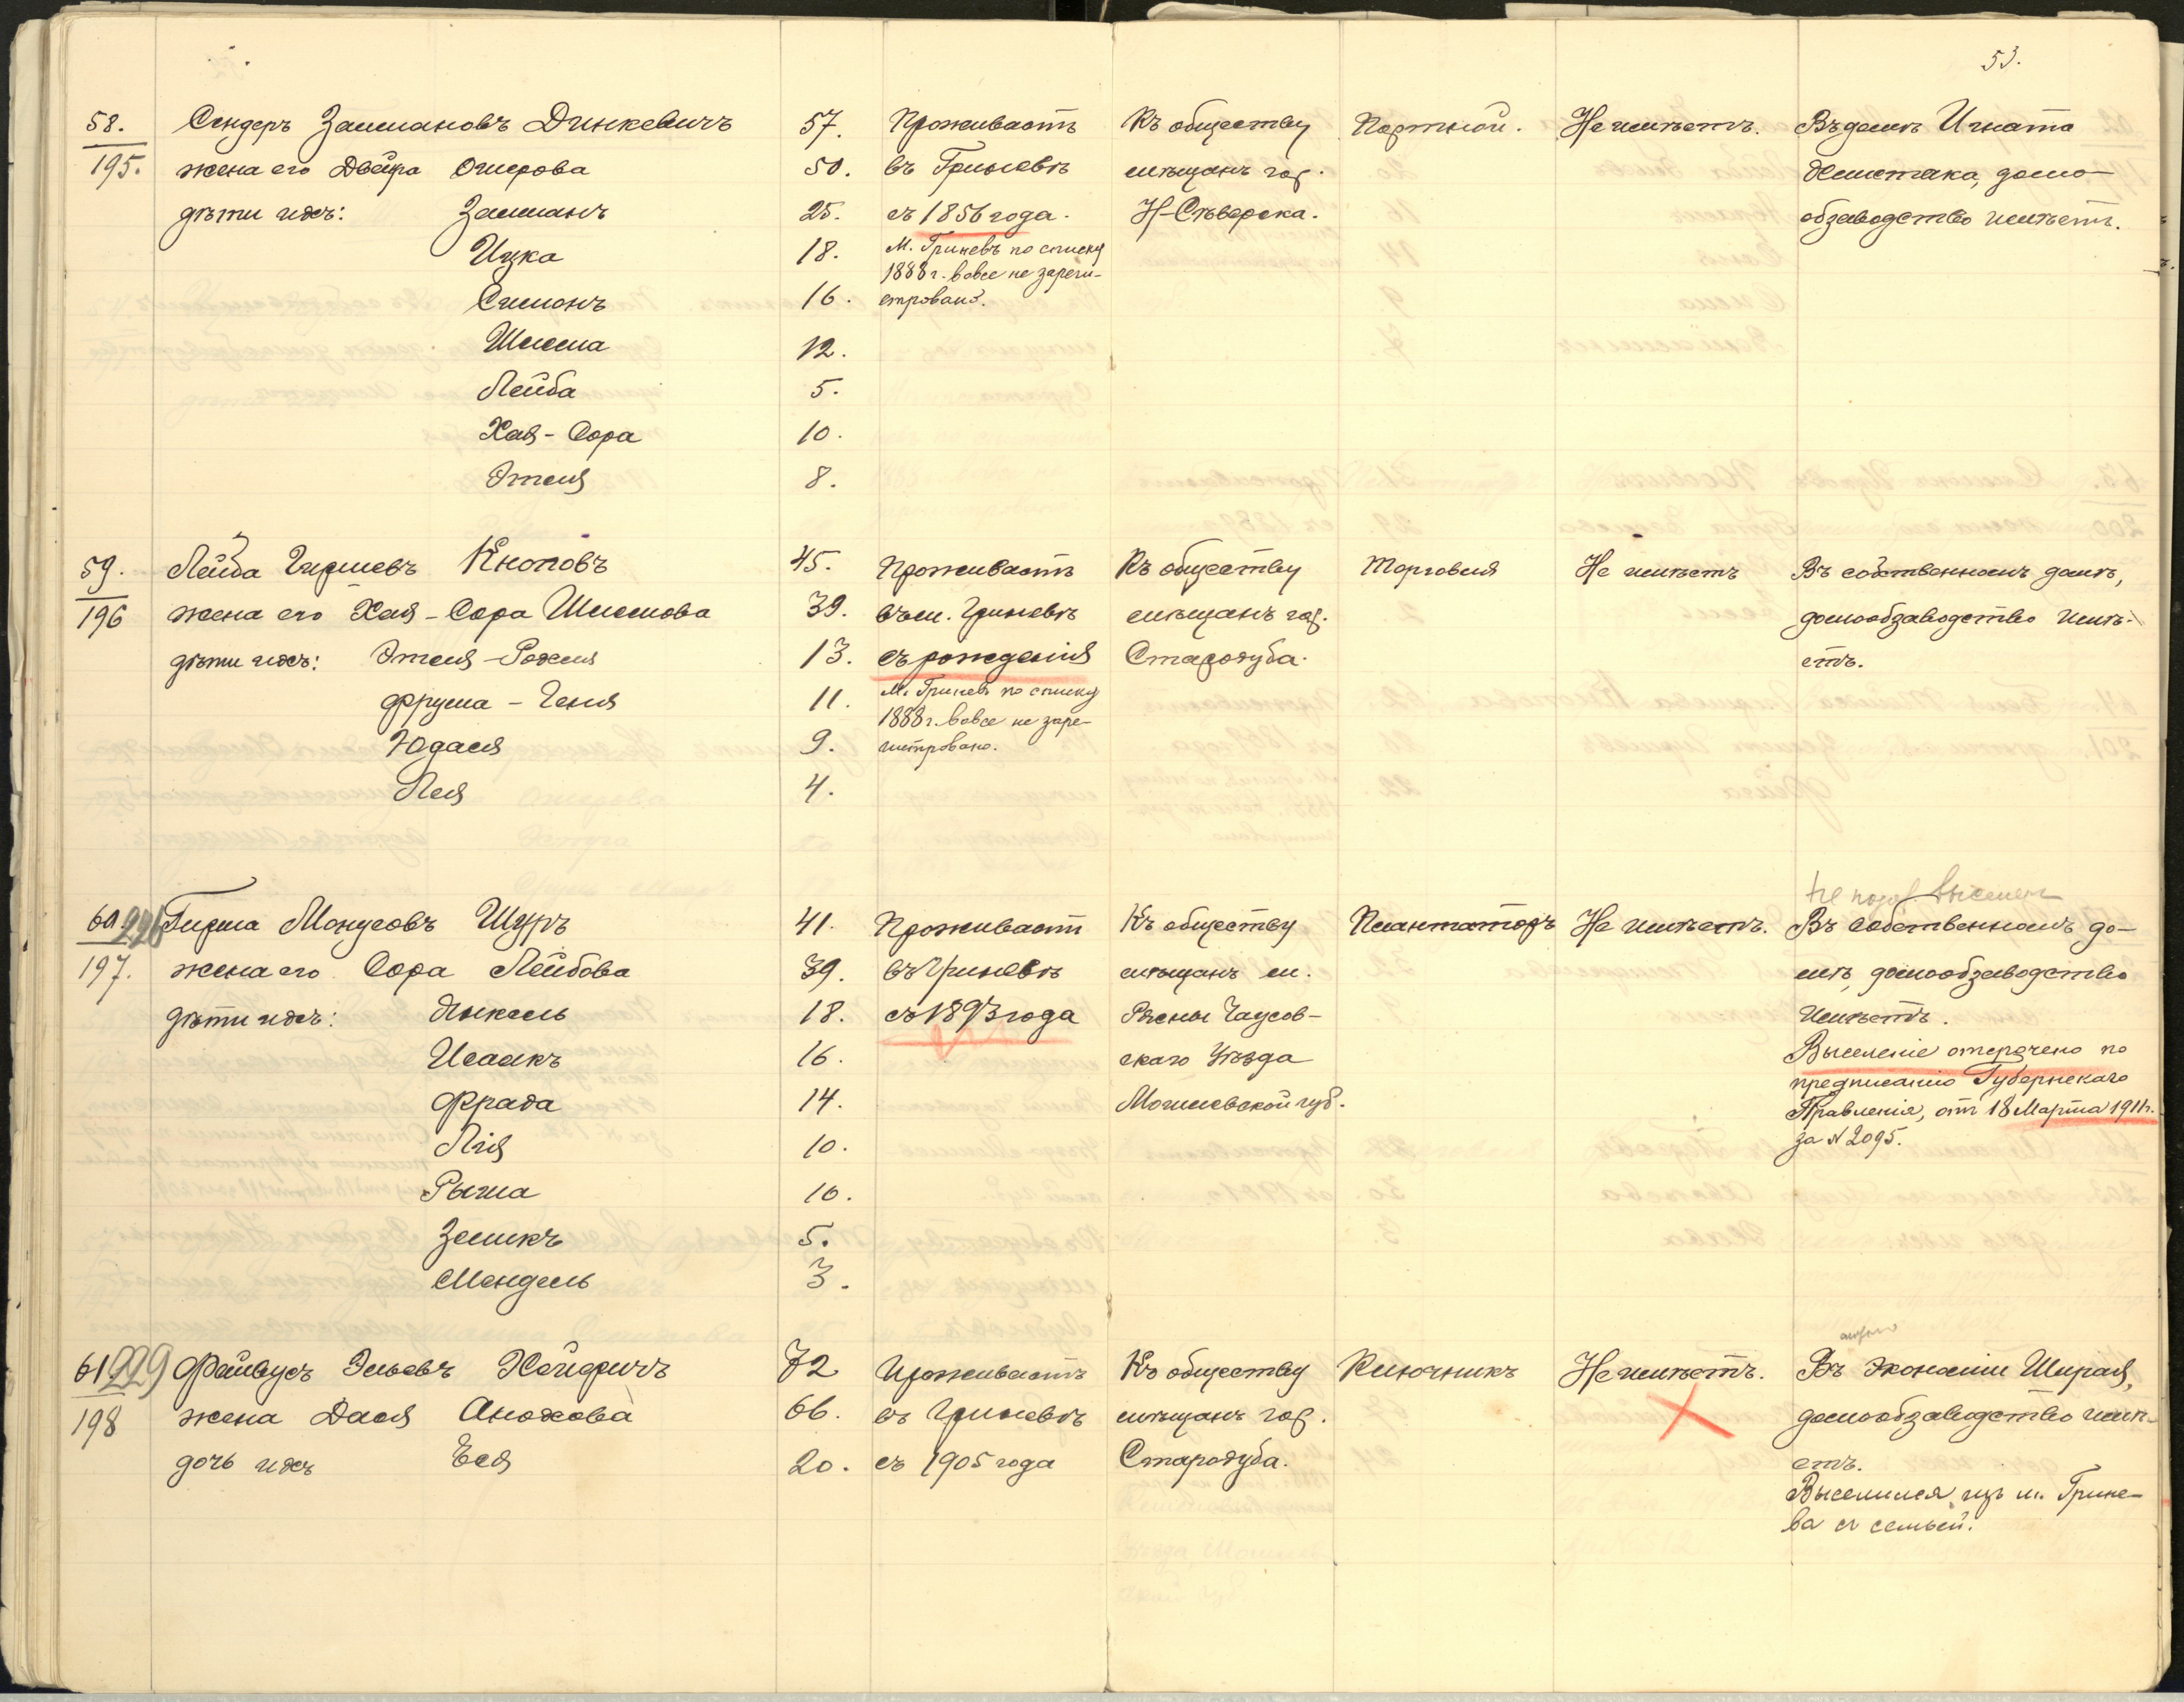 53.
58. Сендеръ Залмановъ Динкевичъ 57. Проживаетъ Къ обществу Портной. Не имѣетъ. Въ домѣ Игната
195. жена его Двейра Ошерова 50. въ Гриневѣ мѣщанъ гор. домо-
дѣти ихъ: Залманъ 25. съ 1856 года. Н-Сѣверска. обзаводство имѣетъ.
Ицка 18. М. Гриневъ по списку
1888 г. вовсе не зареги-
Симонъ 16. стровано.
Шлема 12.
Лейба 5.
Хая-Сора 10.
Этля 8.
59. Лейба Гиршевъ Кноповъ 45. Проживаетъ Къ обществу Торговля Не имѣетъ Въ собственномъ домѣ,
196 жена его Хая-Сора Шлемова 39. въ м. Гриневѣ мѣщанъ гор. домообзаводство имѣ-
дѣти ихъ: Этля-Рохля 13. съ рожденія Стародуба. етъ.
Фрума-Геня 11. М. Гриневъ по списку
1888 г. вовсе не заре-
Юдася 9. гистровано.
Лея 4.
Не подл. выселен
60. 226 Гирша Монусовъ Шуръ 41. Проживаетъ Къ обществу Плантаторъ Не имѣетъ. Въ собственномъ до-
197. жена его Сора Лейбова 39. въ Гриневѣ мѣщанъ м. мѣ, домообзаводство
дѣти ихъ: Янкель 18. съ 1893 года Рясны Чаусов- имѣетъ.
Исаакъ 16. скаго Уѣзда Выселеніе отсрочено по
Фрада 14. Могилевской губ. предписанію Губернскаго
Правленія, отъ 18 Марта 1911 г.
Лія 10. за № 2095.
Рыша 10.
Зеликъ 5.
Мендель 3.
61 229 Файвусъ Эльевъ Хейфичъ 72 Проживаетъ Къ обществу Ключникъ Не имѣетъ. Въ экономіи Ширая,
198 жена Дася Анохова 66. въ Гриневѣ мѣщанъ гор. домообзаводство имѣ-
дочь ихъ Еся 20. съ 1905 года Стародуба. етъ.
Выселился изъ м. Грине-
ва съ семьей.